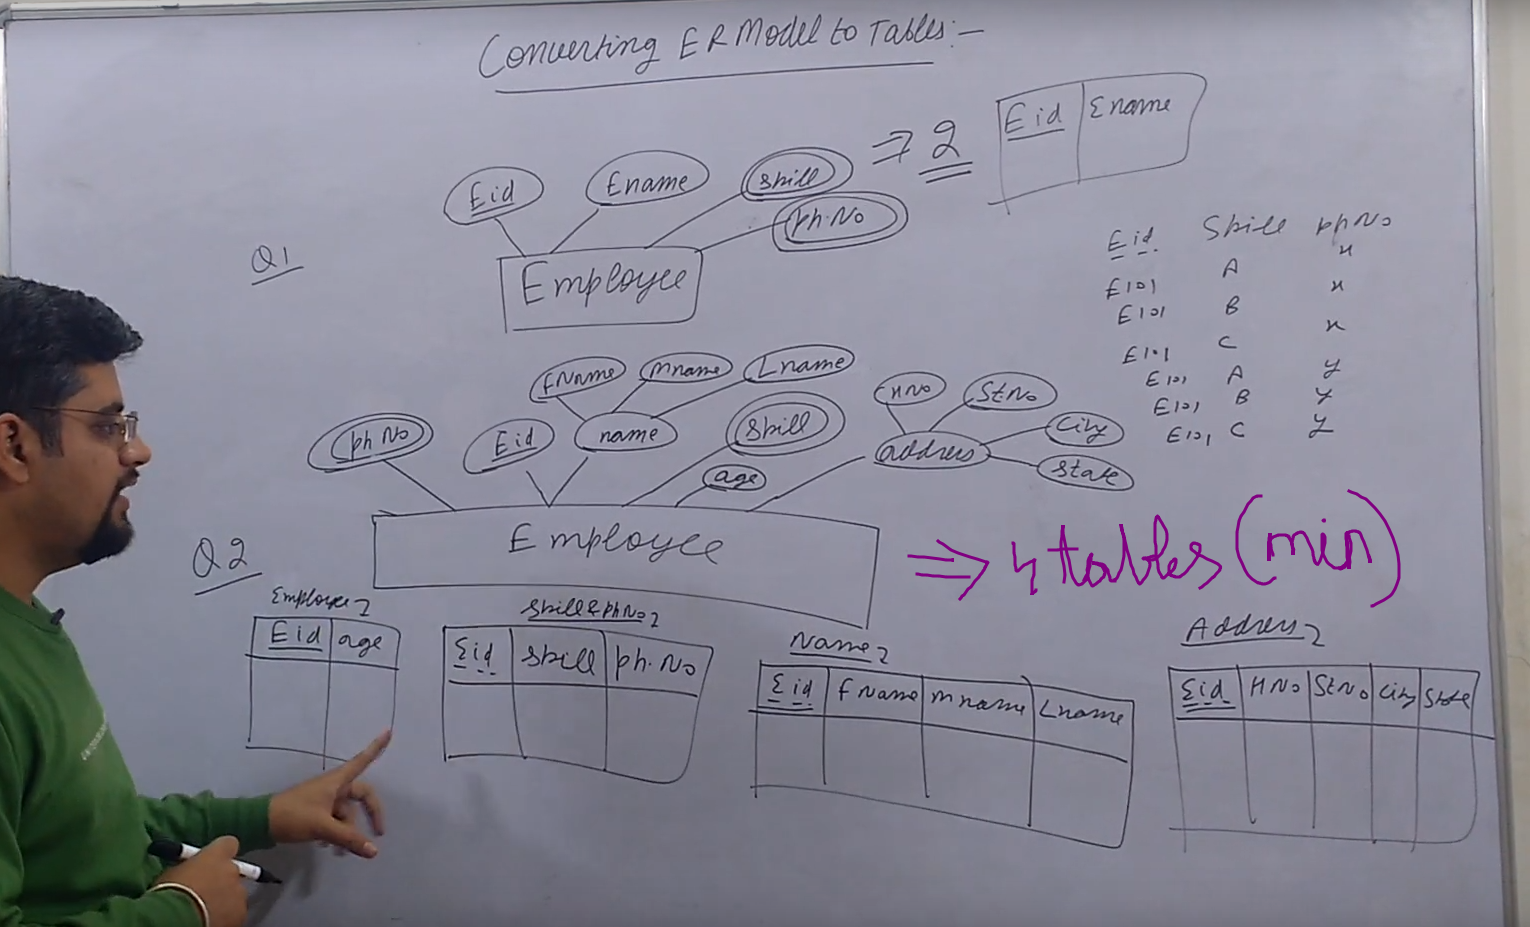 Converting ER Model to Tables:-
Eid Ename
⇒ 2
Eid Ename skill
ph.No
Q1
Employee
Eid Skill phNo
E101 A x
E101 B x
E101 C x
E101 A y
E101 B y
E101 C y
FName mname Lname
HNo StNo
phNo Eid name skill address City
age State
Employee
Q2
⇒ 4 tables (min)
Employee
Eid age
skill & phNo
Eid skill ph.No
Name
Eid FName mname Lname
Address
Eid HNo StNo City State